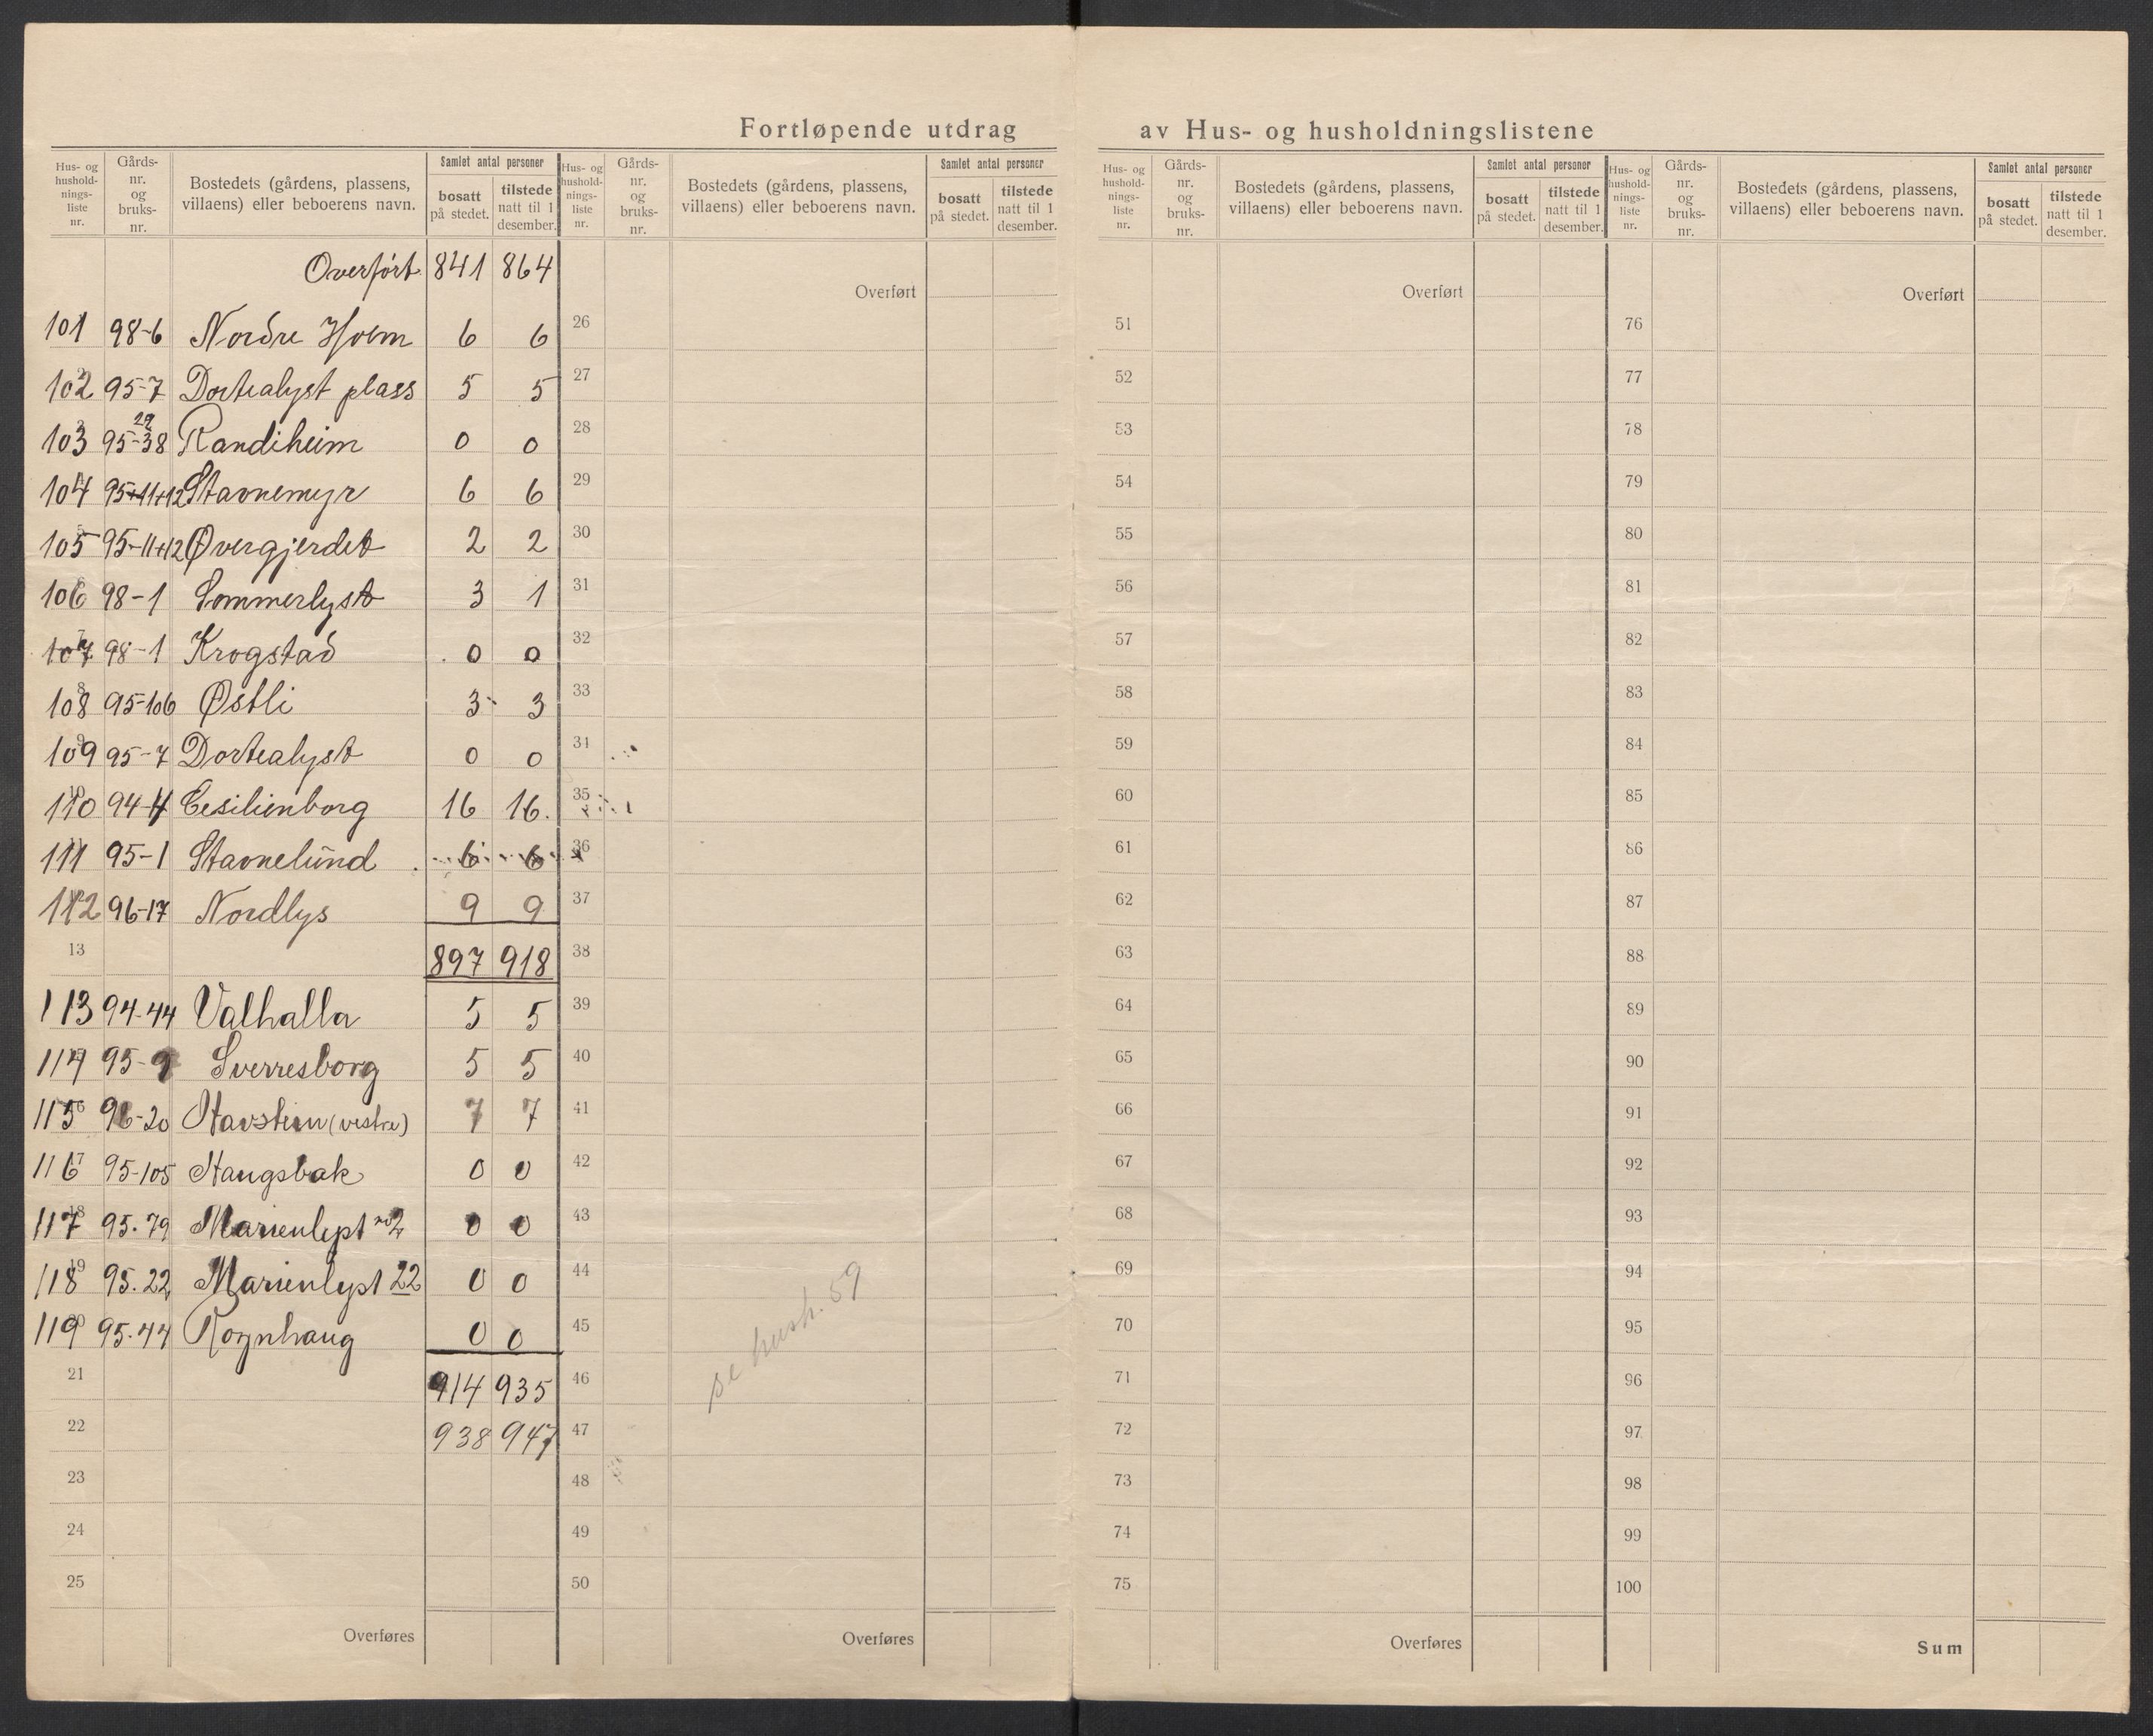 Fortløpende utdrag av Hus- og husholdningslistene
Hus- og husholdnings-liste nr. Gårds-nr. og bruks-nr. Bostedets (gårdens, plassens, villaens) eller beboerens navn. Samlet antal personer bosatt på stedet. tilstede natt til 1 desember.
Hus- og husholdnings-liste nr. Gårds-nr. og bruks-nr. Bostedets (gårdens, plassens, villaens) eller beboerens navn. Samlet antal personer bosatt på stedet. tilstede natt til 1 desember.
Hus- og husholdnings-liste nr. Gårds-nr. og bruks-nr. Bostedets (gårdens, plassens, villaens) eller beboerens navn. Samlet antal personer bosatt på stedet. tilstede natt til 1 desember.
Hus- og husholdnings-liste nr. Gårds-nr. og bruks-nr. Bostedets (gårdens, plassens, villaens) eller beboerens navn. Samlet antal personer bosatt på stedet. tilstede natt til 1 desember.
Overført 841 864 Overført Overført Overført
101 98-6 Nordre Holm 6 6 26 51 76
102 95-7 Dortealyst plass 5 5 27 52 77
103 95-38 29 Randiheim 0 0 28 53 78
104 95+11+12 Stavnemyr 6 6 29 54 79
105 95-11+12 Øvergjerdet 2 2 30 55 80
106 98-1 Sommerlyst 3 1 31 56 81
107 98-1 Krogstad 0 0 32 57 82
108 95-106 Østli 3 3 33 58 83
109 95-7 Dortealyst 0 0 34 59 84
110 94-4 Cesilienborg 16 16. 35 60 85
111 95-1 Stavnelund 6 6 36 61 86
112 96-17 Nordlys 9 9 37 62 87
13 897 918 38 63 88
113 94-44 Valhalla 5 5 39 64 89
114 95-9 Sverresborg 5 5 40 65 90
115 96-20 Havstein (vestre) 7 7 41 66 91
116 95-105 Haugsbak 0 0 42 67 92
117 95.79 Marienlyst no 2 0 0 43 68 93
118 95.22 Marienlyst 22 0 0 44 69 94
119 95.44 Rognhaug 0 0 45 70 95
se hush. 59
21 914 935 46 71 96
22 938 947 47 72 97
23 48 73 98
24 49 74 99
25 50 75 100
Overføres Overføres Overføres Sum